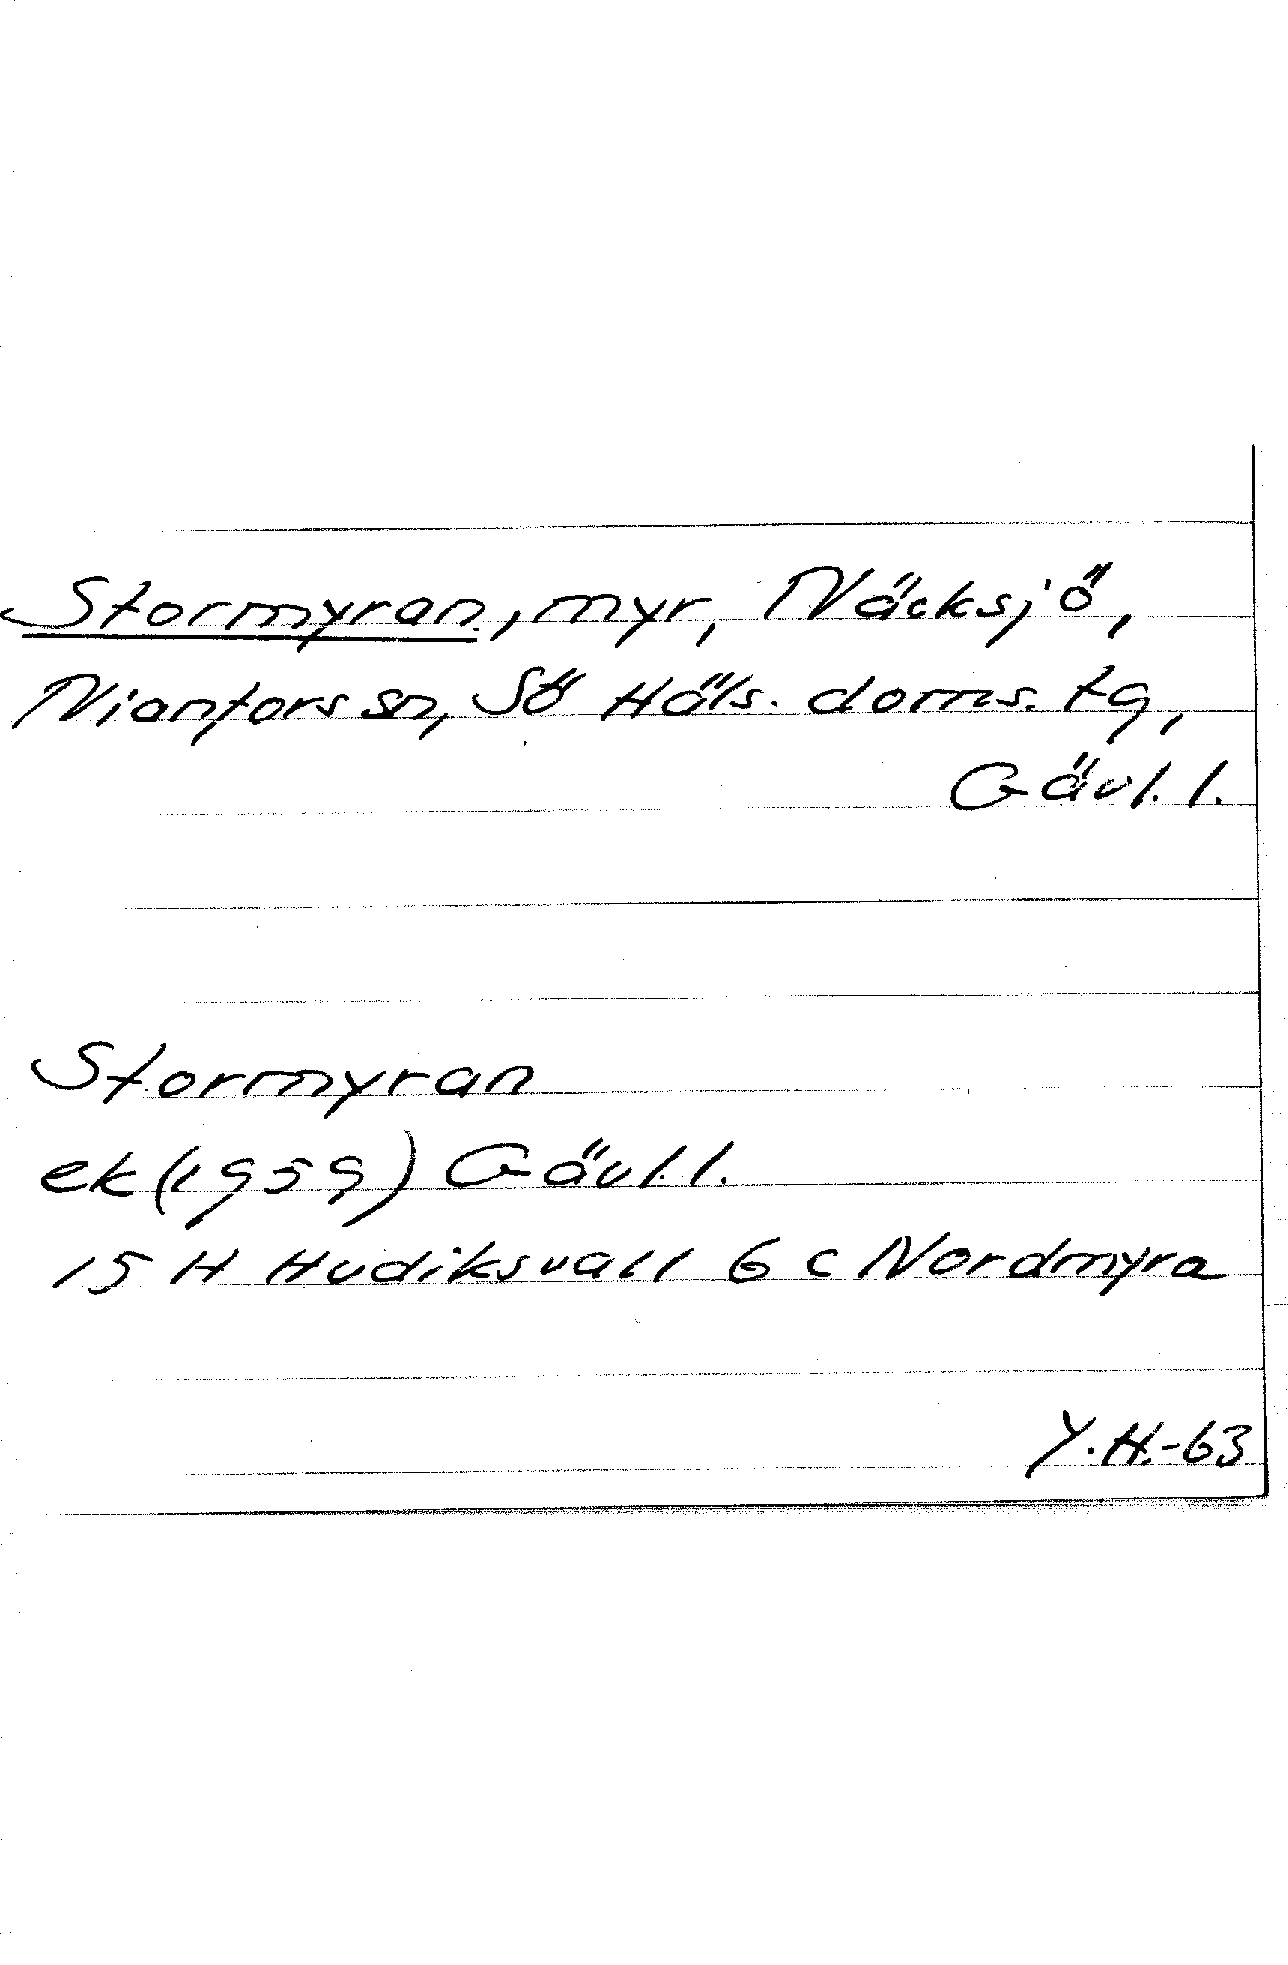 Stormyran, myr, Näcksjö,
Nianfors sn, Sö Häls. doms. tg,
Gävl. l.
Stormyran
ek (1959) Gävl. l.
15 H Hudiksvall 6 c Nordmyra
Y.H.-63